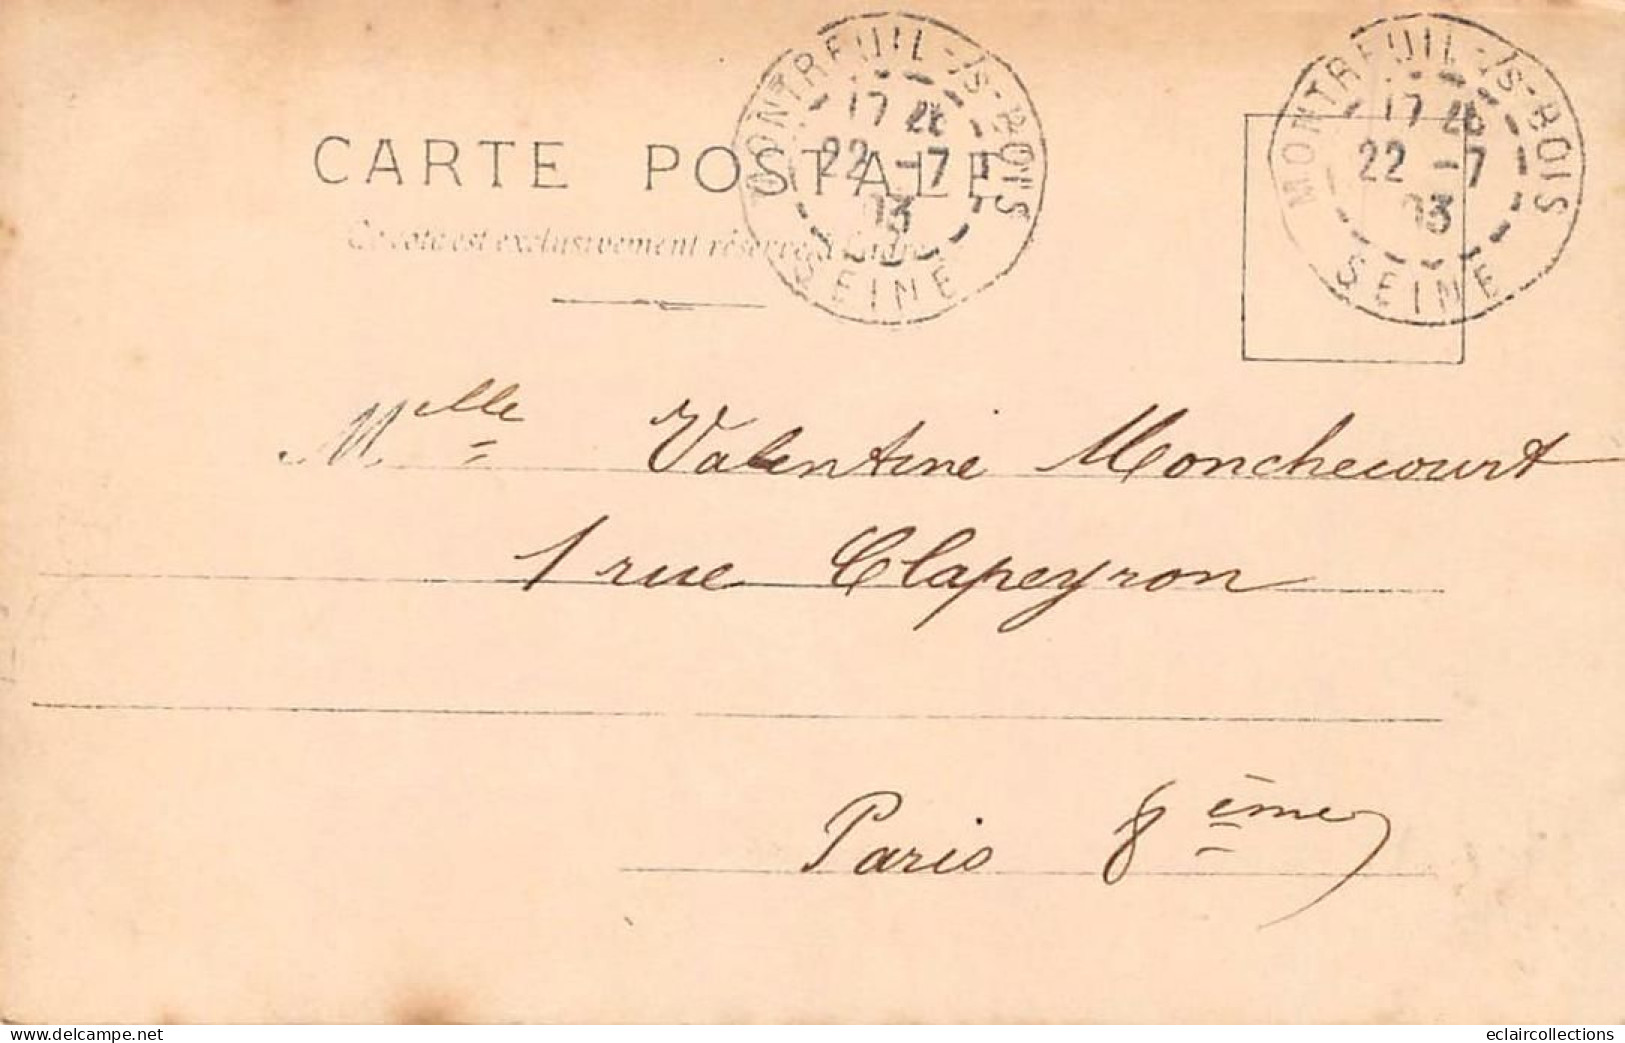 CARTE POSTALE
Ce côté est exclusivement réservé à l'adresse
MONTREUIL-/S-BOIS
17
22 -7
03
SEINE
MONTREUIL-/S-BOIS
17
22 -7
03
SEINE
Mlle Valentine Monchecourt
1 rue Clapeyron
Paris 8ème
delcampe.net
eclaircollections